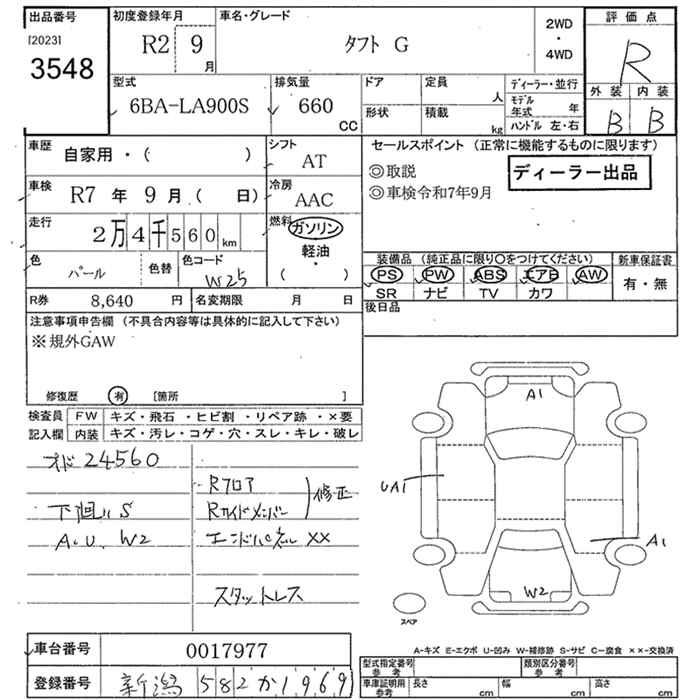 出品番号
[2023]
3548
初度登録年月
R2 9月
車名・グレード
タフト G
2WD
・
4WD
評価点
R
外装 内装
B B
型式
6BA-LA900S
排気量
660
CC
ドア
形状
定員
人
積載
kg
ディーラー・並行
モデル年式 年
ハンドル 左・右
車歴
自家用・( )
シフト
AT
車検
R7 年 9 月 ( 日)
冷房
AAC
走行
2万4千560km
燃料
ガソリン
軽油・
( )
色
パール
色替
色コード
W25
R券 8,640 円
名変期限 月 日
セールスポイント (正常に機能するものに限ります)
◎取説
◎車検令和7年9月
ディーラー出品
装備品 (純正品に限り〇をつけてください)
PS PW ABS エアB AW
SR ナビ TV カワ
新車保証書
有・無
後日品
注意事項申告欄 (不具合内容等は具体的に記入して下さい)
※規外GAW
修復歴 有 [箇所 ]
検査員記入欄
FW キズ・飛石・ヒビ割・リペア跡・×要
内装 キズ・汚レ・コゲ・穴・スレ・キレ・破レ
オド 24560
下回り S
A.U. W2
Rフロア
Rサイドメンバー
修正
エンドパネル ××
スタットレス
A1
UA1
A1
W2
スペア
A-キズ E-エクボ U-凹み W-補修跡 S-サビ C-腐食 ××-交換済
車台番号 0017977
登録番号 新潟 582 か 1969
型式指定番号
参考
類別区分番号
参考
車庫証明用
参考
長さ cm
幅 cm
高さ cm